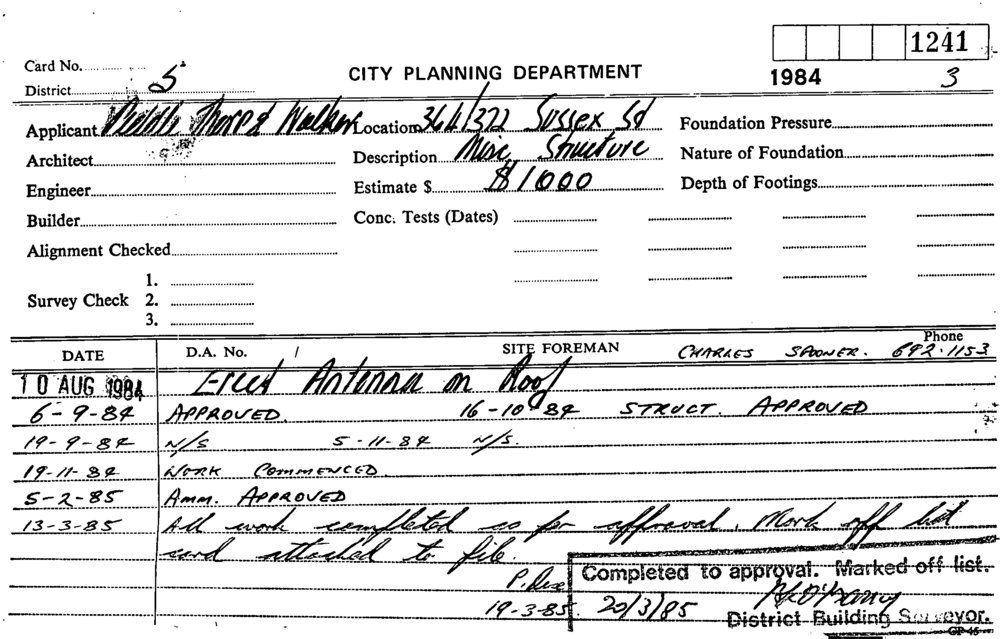 1241
Card No.
CITY PLANNING DEPARTMENT
1984 3
District 5
Applicant Peddle Thorp & Walker Location 364/372 Sussex St Foundation Pressure
Architect Description Misc. Structure Nature of Foundation
Engineer Estimate $ $1000 Depth of Footings
Builder Conc. Tests (Dates)
Alignment Checked
1.
Survey Check 2.
3.
DATE D.A. No. / SITE FOREMAN CHARLES SPOONER. Phone 692.1153
10 AUG 1984 Erect Antenna on Roof
6-9-84 APPROVED. 16-10-84 STRUCT. APPROVED
19-9-84 N/S 5-11-84 N/S.
19-11-84 WORK COMMENCED.
5-2-85 AMM. APPROVED
13-3-85 All work completed as per approval. Mark off list
card attached to file.
P.
Completed to approval. Marked off list.
19-3-85. 20/3/85
District Building Surveyor.
GP 45